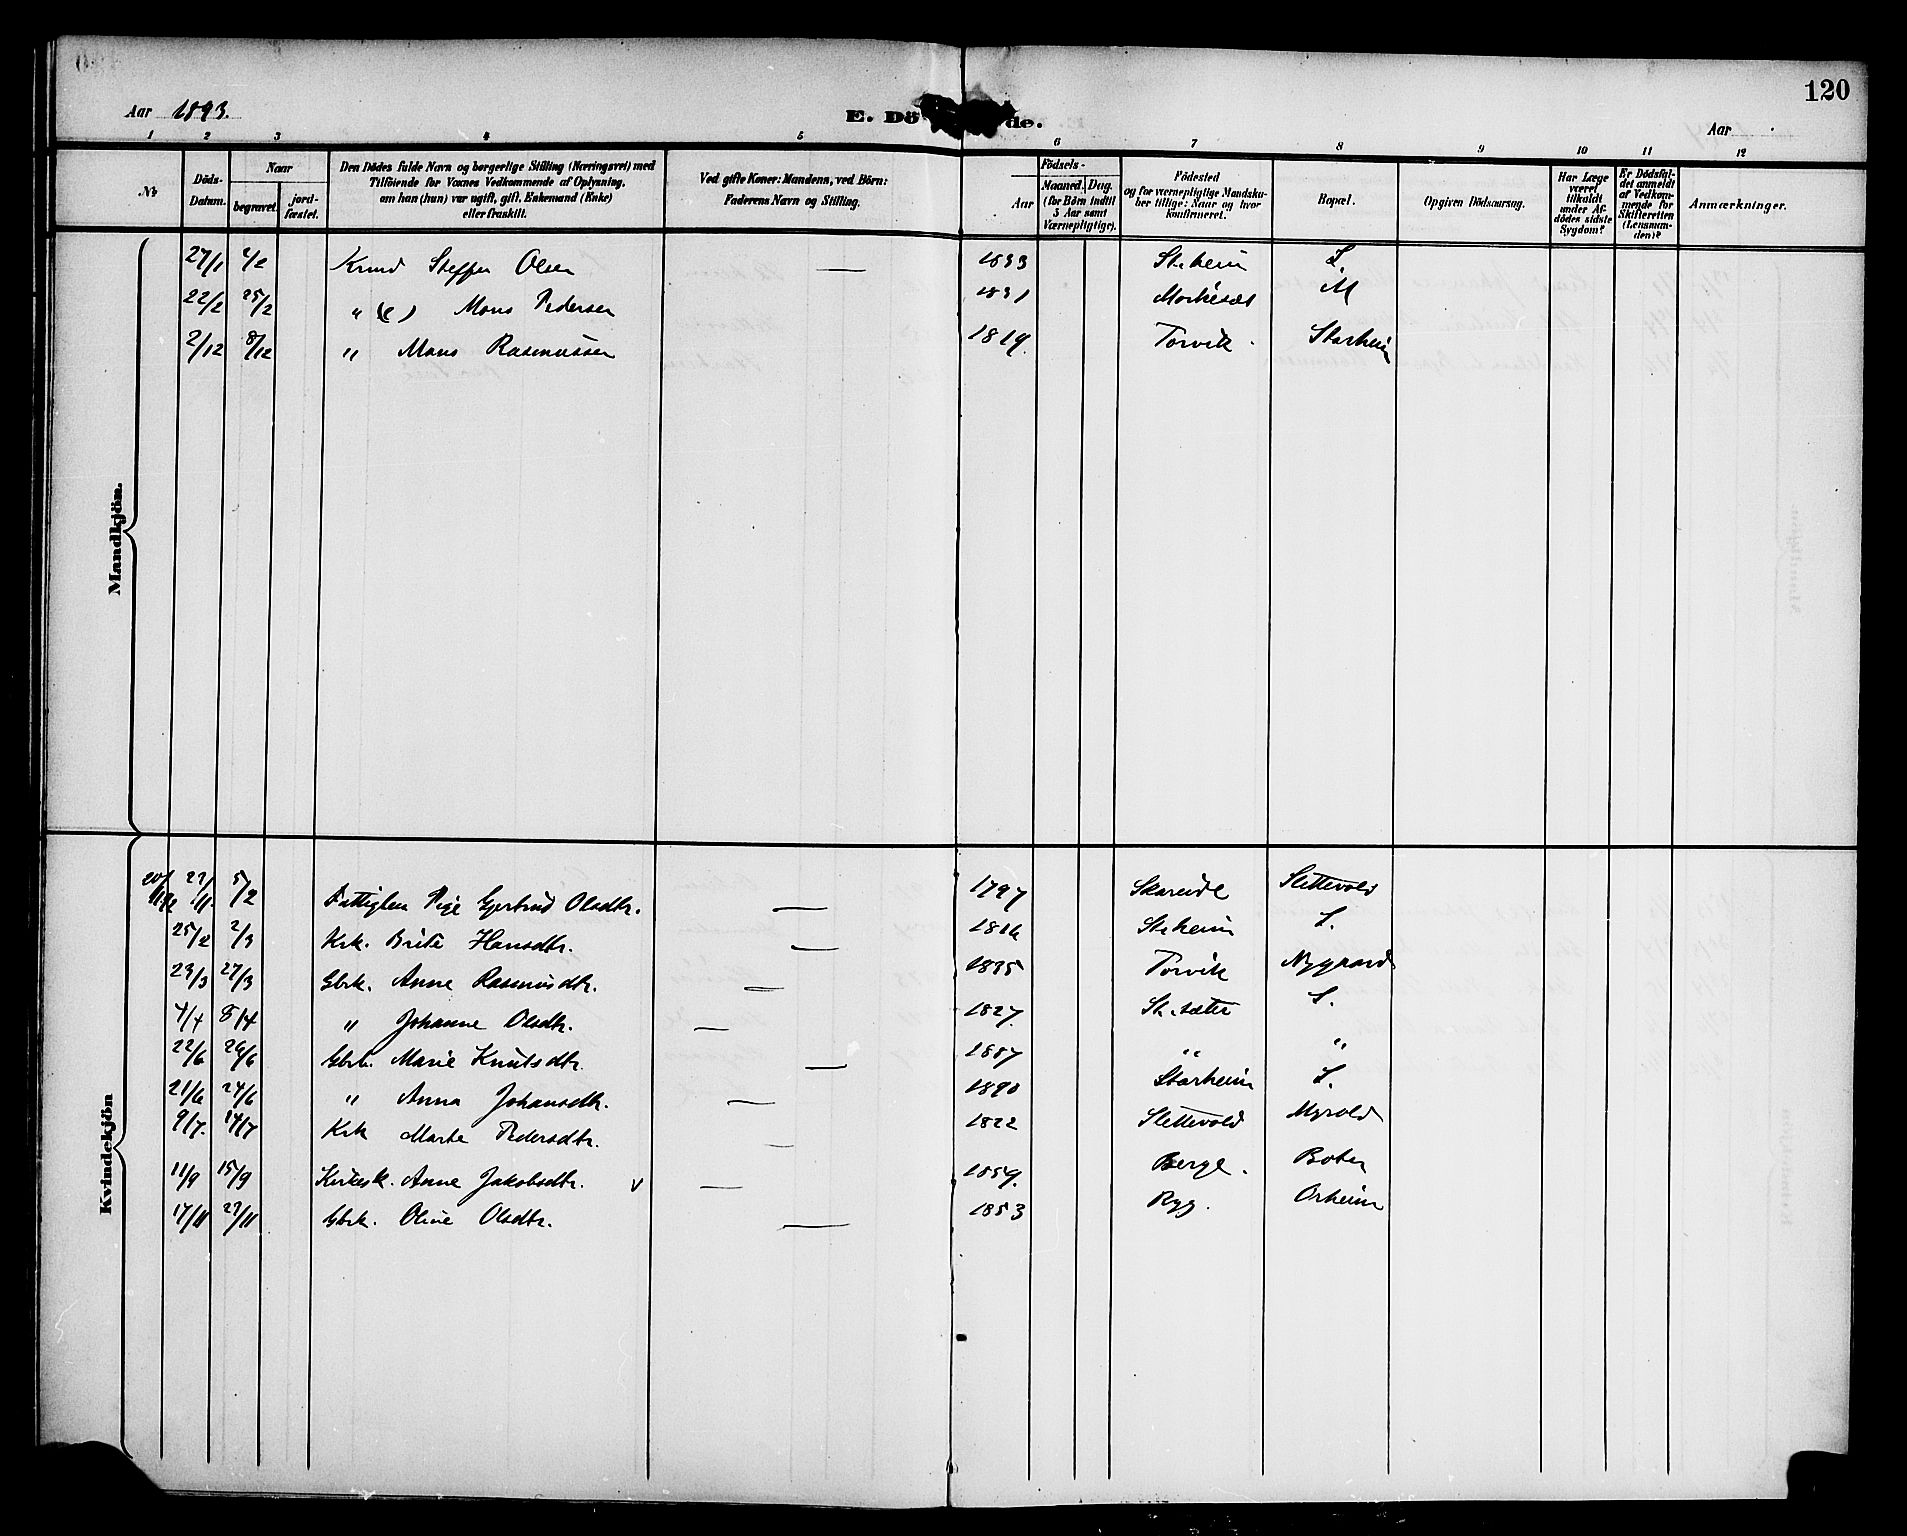 120
Aar 1893.
E. Dö de.
Aar
1 2 3 4 5 6 7 8 9 10 11 12
No
Döds-Datum.
Naar
begravet.
jord-fæstet.
Den Dödes fulde Navn og borgerlige Stilling (Næringsvei) med
Tilföiende for Voxnes Vedkommende af Oplysning,
om han (hun) var ugift, gift, Enkemand (Enke)
eller fraskilt.
Ved gifte Koner: Mandens, ved Börn:
Faderens Navn og Stilling.
Födsels-
Aar
Maaned. Dag.
(for Börn indtil
5 Aar samt
Værnepligtige).
Födested
og for værnepligtige Mandska-
ber tillige: Naar og hvor
konfirmeret.
Bopæl.
Opgiven Dödsaarsag.
Har Læge
været
tilkaldt
under Af-
dödes sidste
Sygdom?
Er Dödsfal-
det anmeldt
af Vedkom-
mende for
Skifteretten
(Lensman-
den)?
Anmærkninger.
Mandkjön.
27/1 4/2 Steffen Olsen — 1833 St.heim S.
22/2 25/2 " (e) Mons Pedersen 1831 M
2/12 8/12 " Mons Rasmussen 1819. Torvik. Starheim
Kvindekjön
5/2 Pige Gjertrud Olsdtr. — 1797 Skareide Slettevold
25/2 2/3 Krk. Brite Hansdtr. — 1816 St.heim S.
23/3 27/3 Gbrk. Anne Rasmusdtr. — 1835 Torvik Nygaard
4/4 8/4 " Johanne Olsdtr. — 1827. St.sæter S.
22/6 26/6 Gbrk. Marie Knutsdtr. — 1887 " "
21/6 24/6 " Anna Johansdtr. — 1890 Starheim S.
9/7. 14/7 Krk Marte Pedersdtr. — 1822 Slettevold Myrold
11/9 15/9 Kirkesk. Anne Jakobsdtr. v — 1859. Berge. Boten
17/11 27/11 Gbrk. Oline Olsdtr. — 1853 Ryg. Orheim